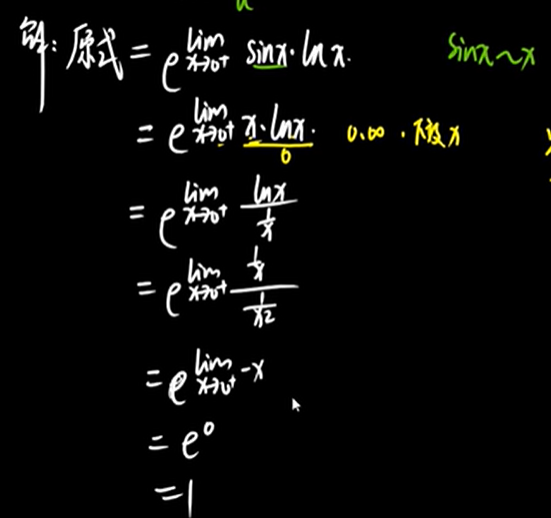 解:原式 = e^{lim_{x→0⁺} sinx·lnx.} sinx~x
= e^{lim_{x→0⁺} x·lnx.} 0 0.∞ ·下放x
= e^{lim_{x→0⁺} \frac{lnx}{\frac{1}{x}}}
= e^{lim_{x→0⁺} \frac{\frac{1}{x}}{\frac{1}{x2}}}
= e^{lim_{x→0⁺} -x}
= e⁰
= 1